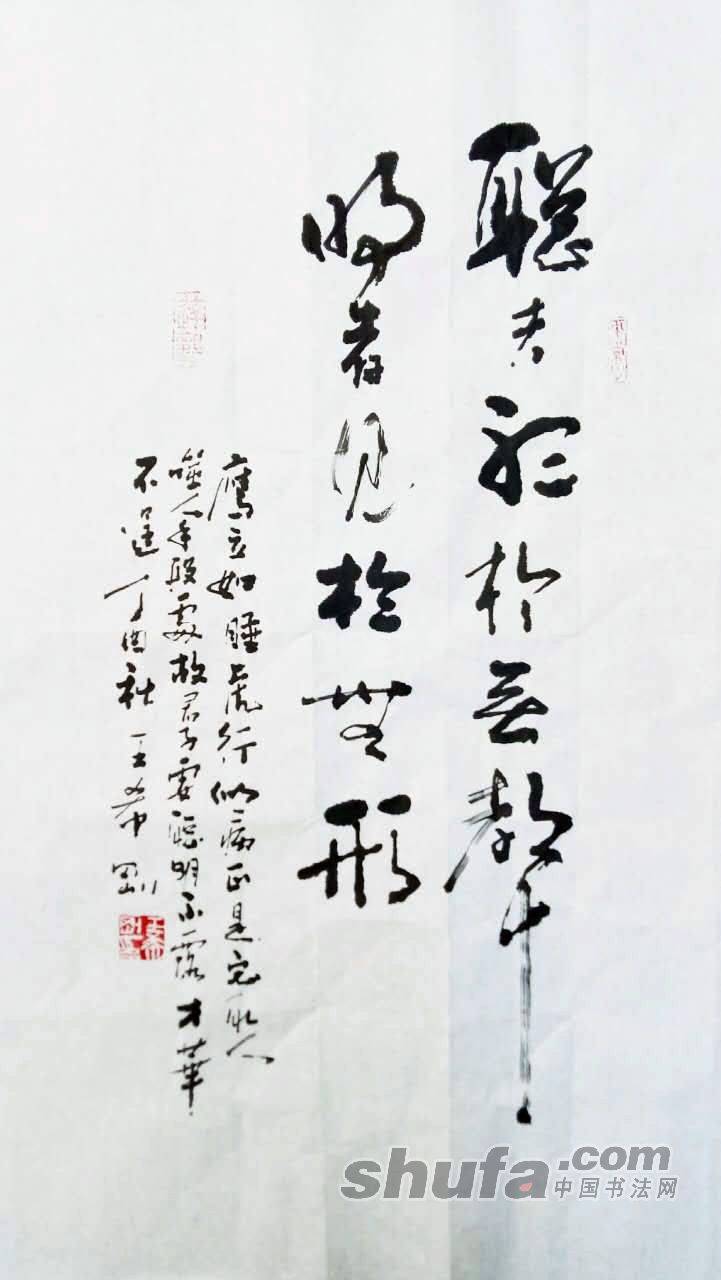 聰者聽於無聲
明者見於無形
鷹立如睡虎行似病正是它取人
噬人手段處故君子要聰明不露才華
不逞丁酉秋王希剛
shufa.com
中国书法网